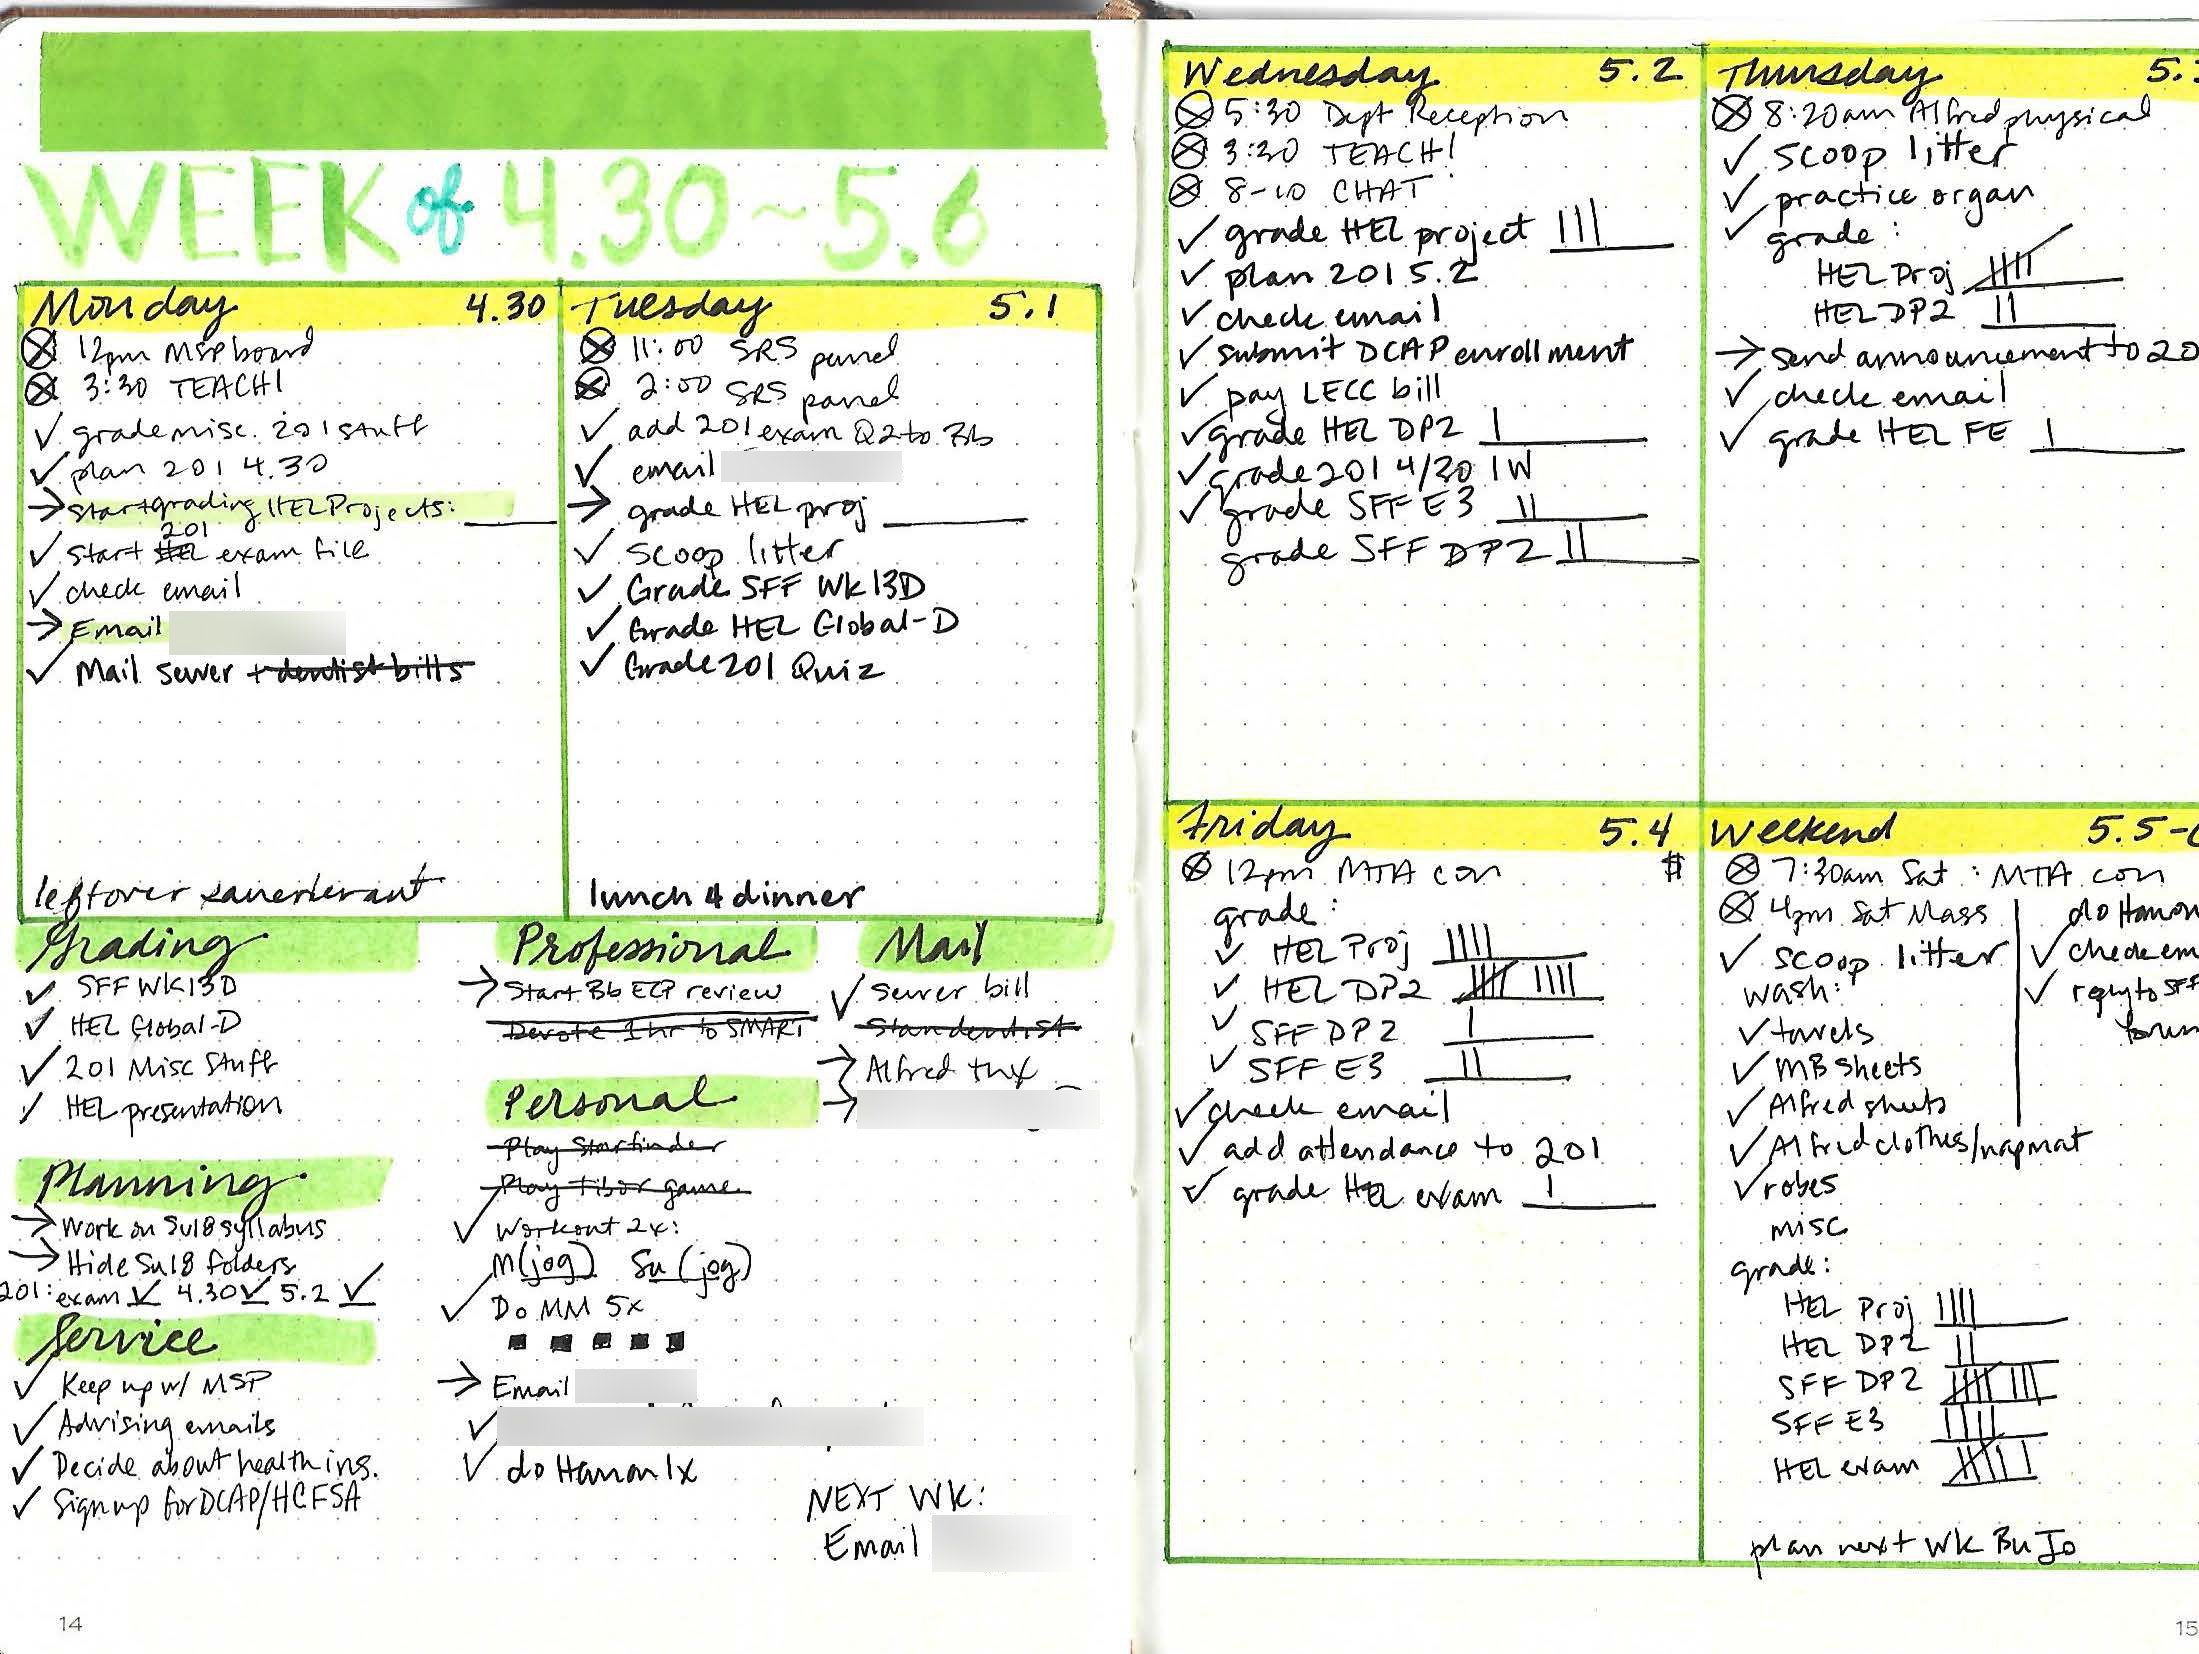 WEEK of 4.30~5.6
Monday 4.30
12pm MSP board
3:30 TEACH!
grade misc. 201 stuff
plan 201 4.30
Start grading HEL Projects:
201
start HEL exam file
check email
Email
Mail sewer + dentist bills
leftover sauerkraut
Tuesday 5.1
11:00 SRS panel
2:00 SRS panel
add 201 exam Q2 to Bb
email
grade HEL proj
scoop litter
Grade SFF Wk13D
Grade HEL Global-D
Grade 201 Quiz
lunch 4 dinner
Grading
SFF WK13D
HEL Global-D
201 Misc Stuff
HEL presentation
Planning
Work on Su18 syllabus
Hide Su18 folders
201: exam 4.30 5.2
Service
Keep up w/ MSP
Advising emails
Decide about health ins.
Sign up for DCAP/HCFSA
Professional
Start Bb ECP review
Devote 1 hr to SMART
Personal
Play Starfinder
Play Tibor game
Workout 2x:
M(jog) Su (jog)
Do MM 5x
Email
do Hanon 1x
Mail
sewer bill
Stan dentist
Alfred thx
NEXT WK:
Email
14
Wednesday 5.2
5:30 Dept Reception
3:30 TEACH!
8-10 CHAT
grade HEL project
plan 201 5.2
check email
submit DCAP enrollment
pay LECC bill
grade HEL DP2
grade 201 4/30 IW
grade SFF E3
grade SFF DP2
Thursday 5.
8:20am Alfred physical
scoop litter
practice organ
grade:
HEL Proj
HEL DP2
send announcement to 20
check email
grade HEL FE
Friday 5.4
12pm MTA con $
grade:
HEL Proj
HEL DP2
SFF DP2
SFF E3
check email
add attendance to 201
grade HEL exam
Weekend 5.5-
7:30am Sat: MTA con
4pm Sat Mass
scoop litter
wash:
towels
MB sheets
Alfred sheets
Alfred clothes/nap mat
robes
misc
do Hanon
check em
reply to SFF
grade:
HEL Proj
HEL DP2
SFF DP2
SFF E3
HEL exam
plan next wk BuJo
15